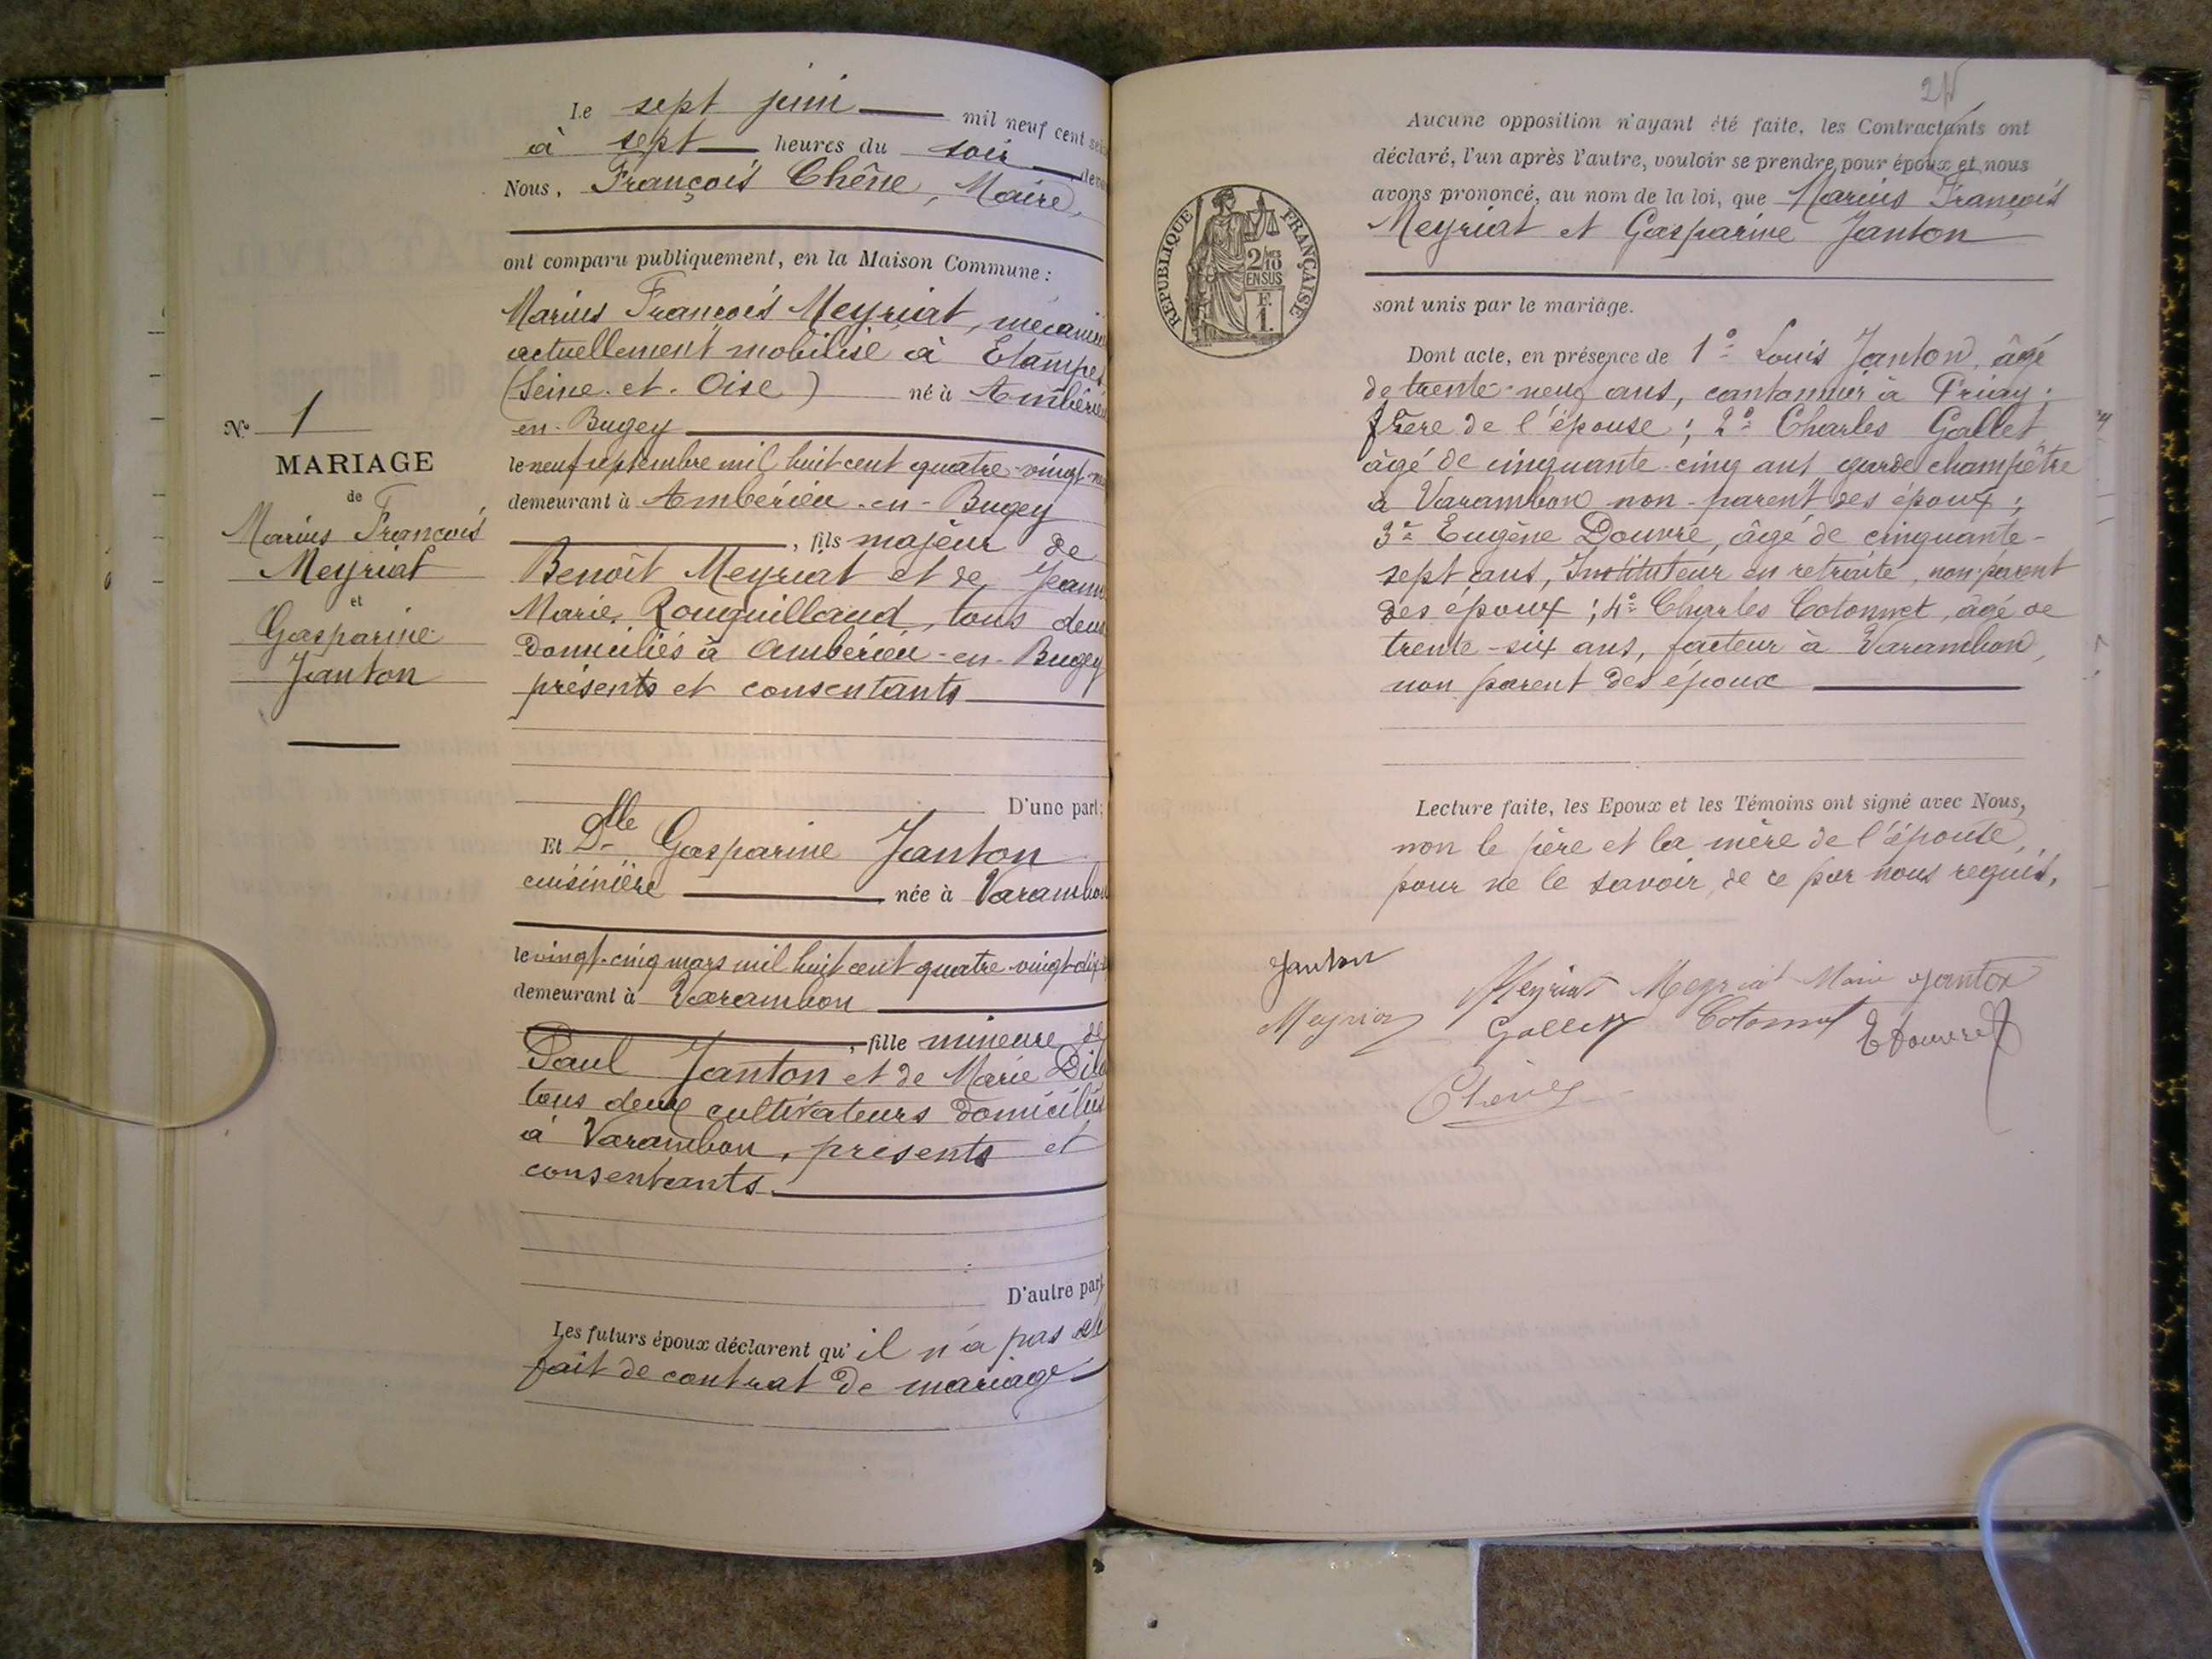 Le sept juin mil neuf cent
à sept heures du soir
Nous, François Chêne, Maire,
ont comparu publiquement, en la Maison Commune :
Marius François Meyriat,
actuellement mobilisé à Etampes
(Seine-et-Oise) né à
en-Bugey
le neuf septembre mil huit cent quatre-vingt-
demeurant à Ambérieu-en-Bugey
, fils majeur de
Benoît Meyriat et de Jeanne
Marie Rouguilland, tous deux
Domiciliés à Ambérieu-en-Bugey
présents et consentants
D'une part;
Et Dlle Gasparine Janton
cuisinière née à Varambon
le vingt-cinq mars mil huit cent quatre-vingt-
demeurant à Varambon
, fille mineure de
Paul Janton et de Marie
tous deux cultivateurs domiciliés
à Varambon, présents et
consentants.
D'autre part
Les futurs époux déclarent qu'il n'a pas été
fait de contrat de mariage
No 1
MARIAGE
de
Marius François
Meyriat
et
Gasparine
Janton
Aucune opposition n'ayant été faite, les Contractants ont
déclaré, l'un après l'autre, vouloir se prendre pour époux et nous
avons prononcé, au nom de la loi, que Marius François
Meyriat et Gasparine Janton
sont unis par le mariage.
Dont acte, en présence de 1° Louis Janton, âgé
de trente-neuf ans, cantonnier à Priay;
frère de l'épouse; 2° Charles Gallet
âgé de cinquante-cinq ans garde champêtre
à Varambon non-parent des époux;
3° Eugène Douvre, âgé de cinquante-
sept ans, Instituteur en retraite, non-parent
des époux; 4° Charles Cotonnet, âgé de
trente-six ans, facteur à Varambon,
non parent des époux
Lecture faite, les Epoux et les Témoins ont signé avec Nous,
non le père et la mère de l'épouse,
pour ne le savoir, de ce par nous requis.
Janton
Meyriat Meyriat Marie Janton
Meyriat Gallet Cotonnet E Douvre
Chêne
RÉPUBLIQUE FRANÇAISE
2/10
EN SUS
F.
1.